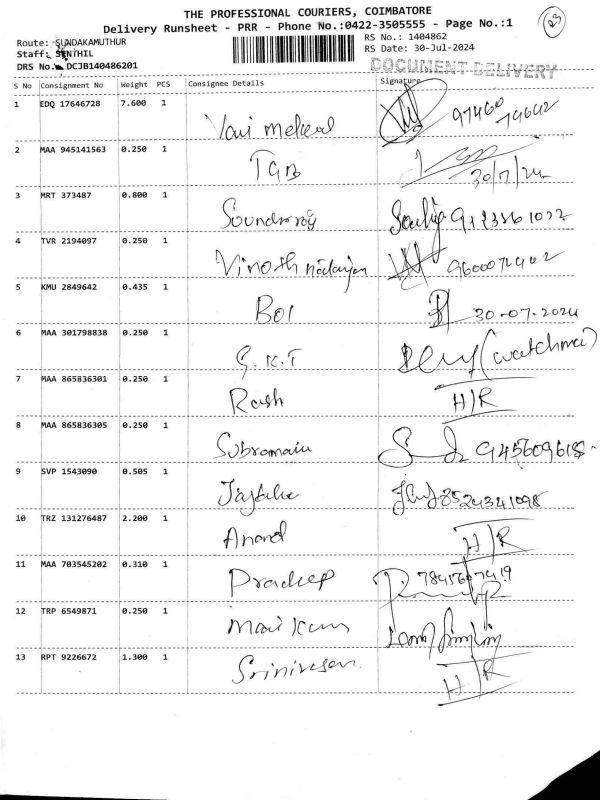 THE PROFESSIONAL COURIERS, COIMBATORE
Delivery Runsheet - PRR - Phone No.:0422-3505555 - Page No.:1
23
Route: SUNDAKAMUTHUR
Staff: SENTHIL
DRS No.: DCJB140486201
RS No.: 1404862
RS Date: 30-Jul-2024
DOCUMENT DELIVERY
S No Consignment No Weight PCS Consignee Details Signature
1 EDQ 17646728 7.600 1 Vani Medical 97460
2 MAA 945141563 0.250 1 TGB 30/7/24
3 MRT 373487 0.800 1 Soundrraj
4 TVR 2194097 0.250 1 Vinoth
5 KMU 2849642 0.435 1 BOI 30-07-2024
6 MAA 301798838 0.250 1 S.K.T (watchman)
7 MAA 865836301 0.250 1 Rash H/R
8 MAA 865836305 0.250 1 Subramain 945609618
9 SVP 1543090 0.505 1 8524341098
10 TRZ 131276487 2.200 1 Anand H/R
11 MAA 703545202 0.310 1 Pradeep
12 TRP 6549871 0.250 1
13 RPT 9226672 1.300 1 Srinivasan H/R